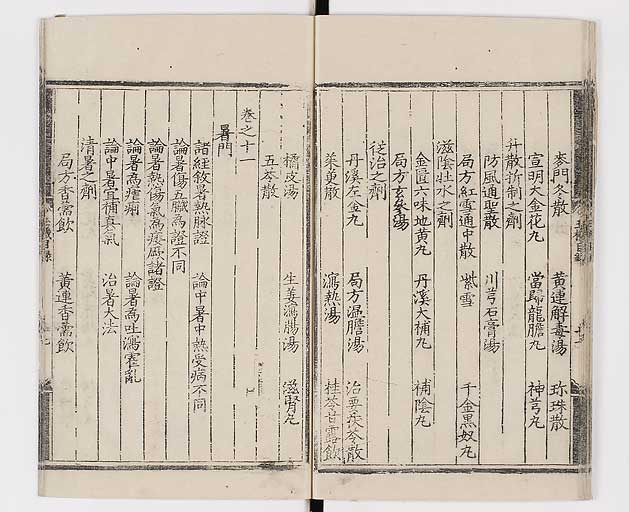 麥門冬散 黃連解毒湯 珎珠散
宣明大金花丸 當歸龍膽丸 神芎丸
升散折制之劑
防風通聖散 川芎石膏湯
局方紅雪通中散 紫雪 千金黑奴丸
滋陰壯水之劑
金匱六味地黃丸 丹溪大補丸 補陰丸
局方玄參湯
從治之劑
丹溪左金丸 局方溫膽湯 治要茯苓散
茱萸散 瀉熱湯 桂苓甘露飲
橘皮湯 生姜瀉腸湯 滋腎丸
五苓散
卷之十一
暑門
諸經敘暑熱脉證 論中暑中熱受病不同
論暑傷五臟為證不同
論暑熱傷氣為痿厥諸證
論暑為瘧痢 論暑為吐瀉霍亂
論中暑宜補真氣 治暑大法
清暑之劑
局方香薷飲 黃連香薷飲